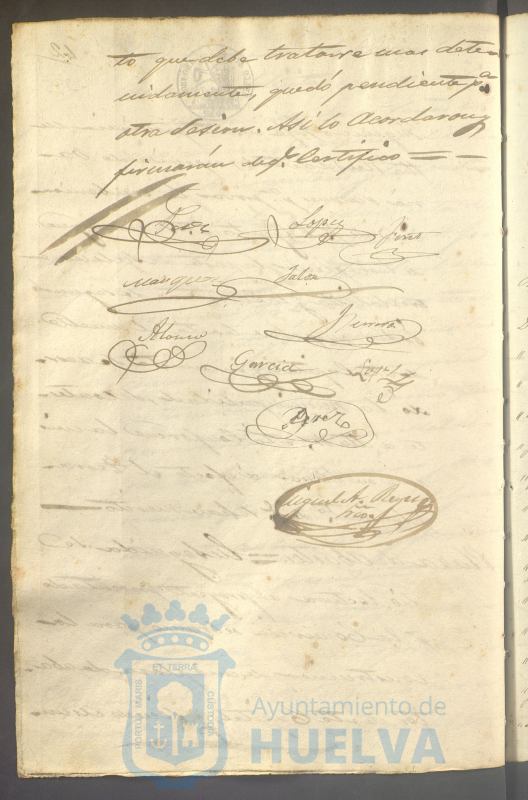 to que debe tratarse mas dete-
nidamente, quedó pendiente pª
otra sesion. Asi lo acordaron y
firmarán de q.e Certifico = =
Lopez
Perez
Marquez
Jalon
Alonso
García
Lopez
Perez
Miguel A. Reyes
Srio
ET TERRÆ
PORTUS MARIS
CUSTODIA
Ayuntamiento de
HUELVA